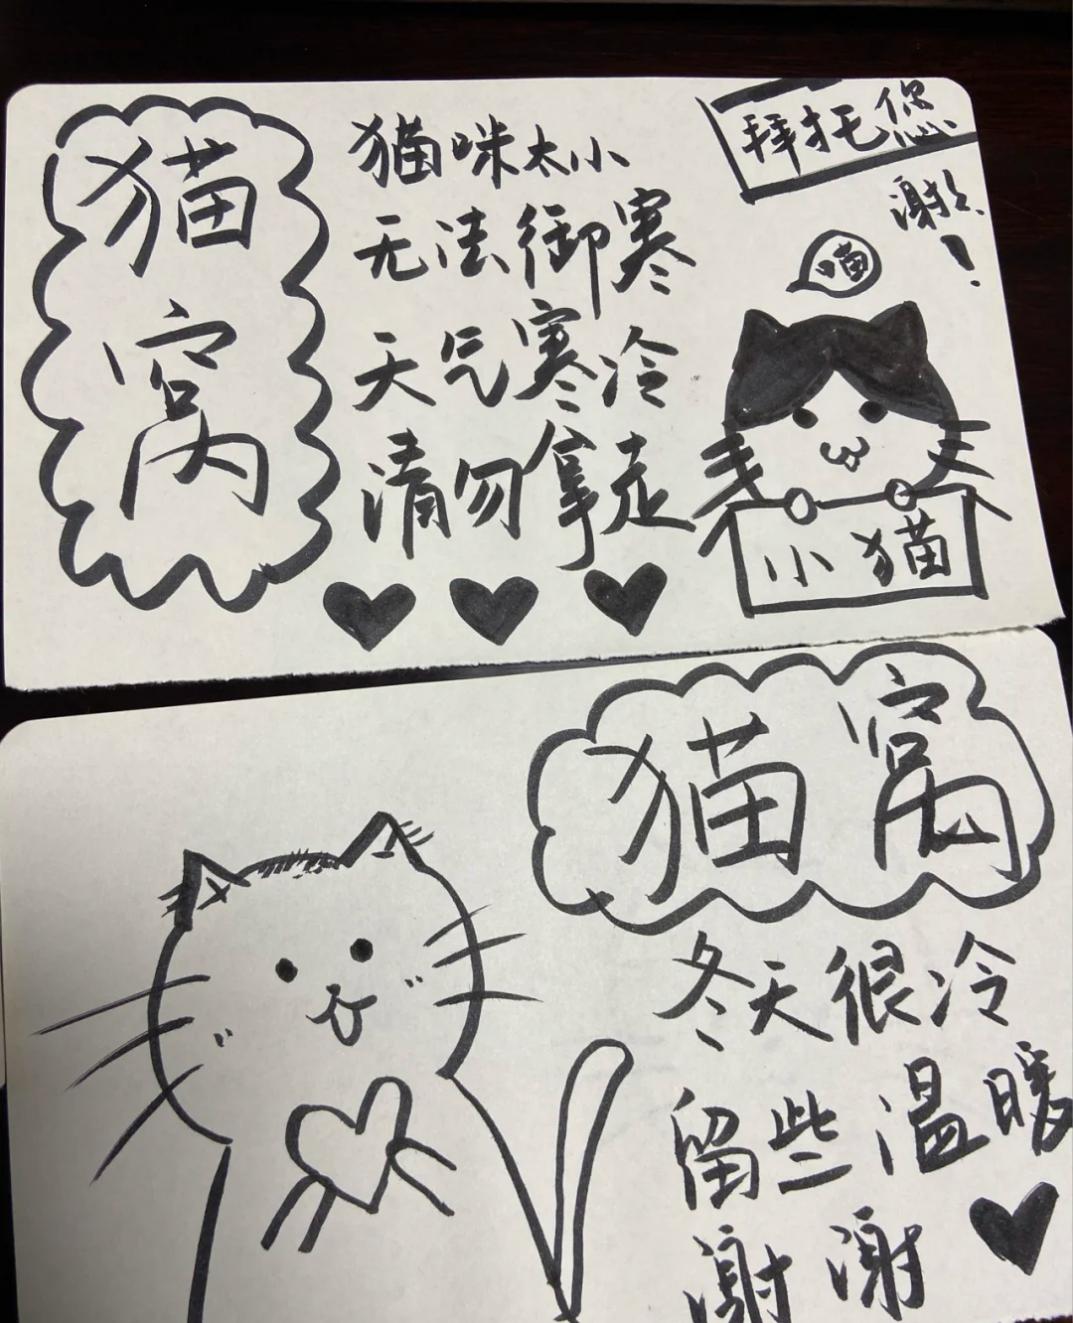 猫窝
猫咪太小
无法御寒
天气寒冷
请勿拿走
拜托您
谢谢!
喵
小猫
猫窝
冬天很冷
留些温暖
谢谢